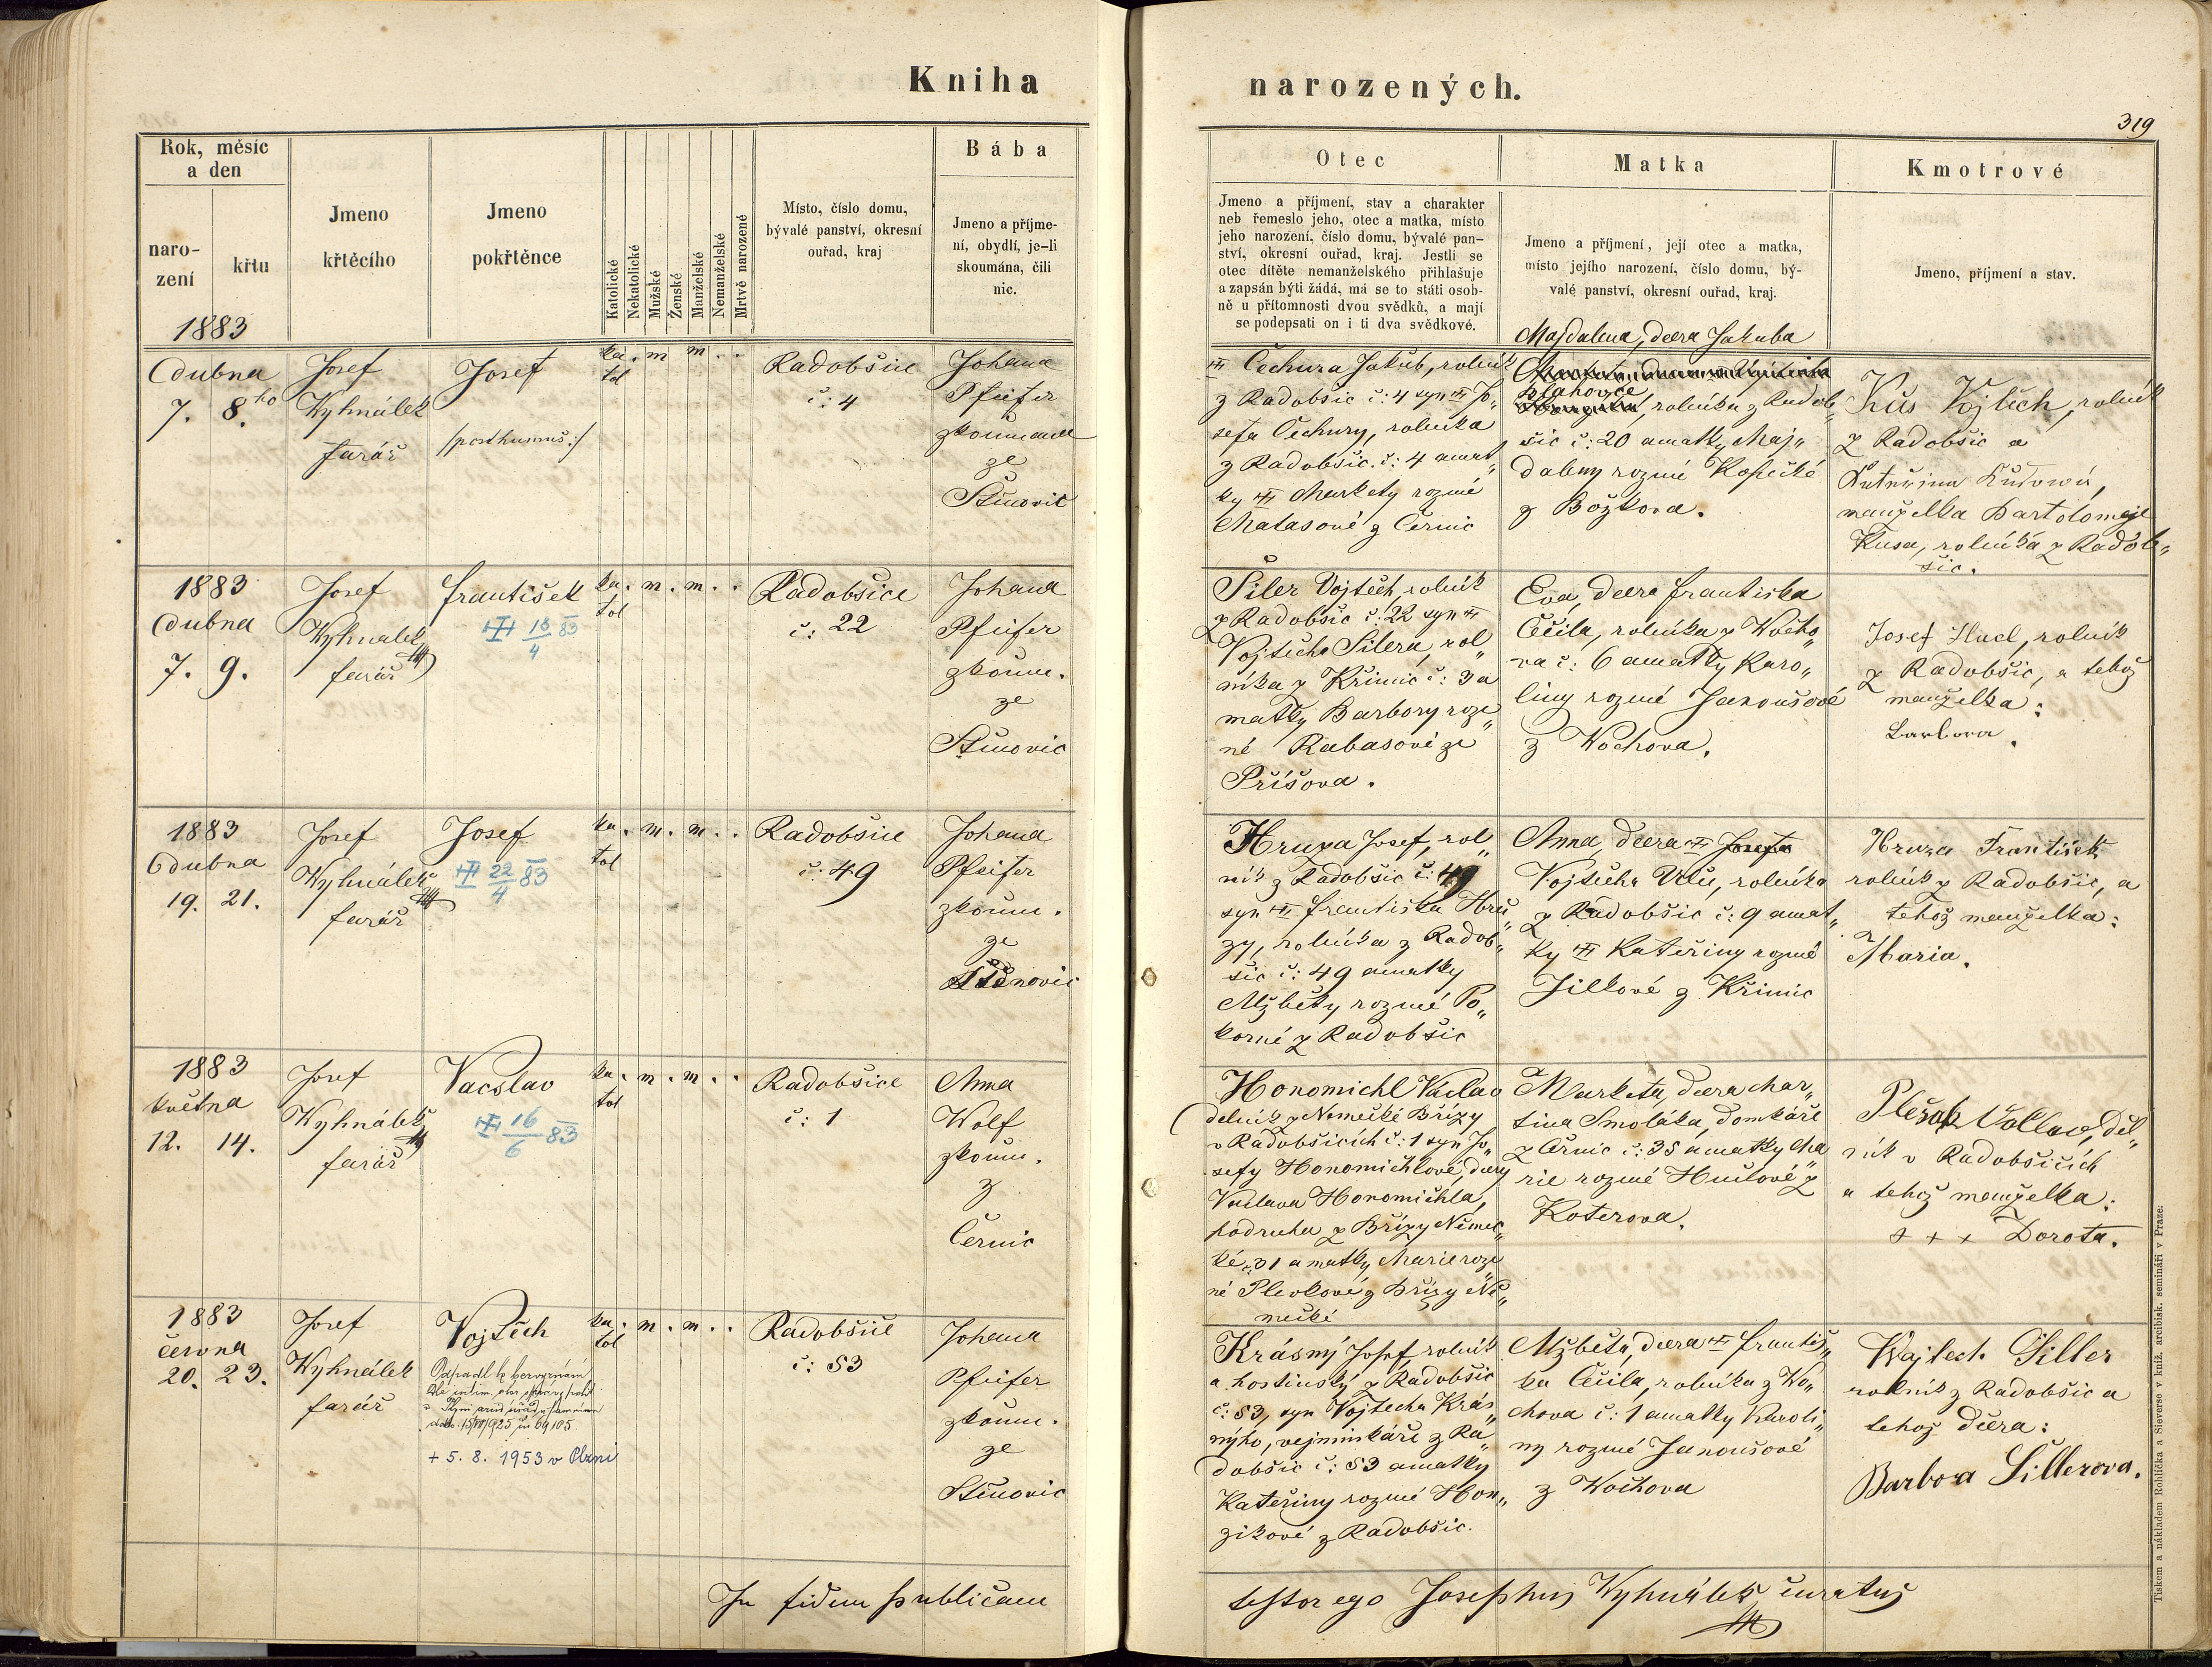 Kniha
narozených.
319
Rok, měsíc
a den
naro-
zení
křtu
1883
Jmeno
křtěcího
Jmeno
pokřtěnce
Katolické
Nekatolické
Mužské
Ženské
Manželské
Nemanželské
Mrtvě narozené
Místo, číslo domu,
bývalé panství, okresní
ouřad, kraj
Bába
Jmeno a příjme-
ní, obydlí, je-li
skoumána, čili
nic.
Otec
Jmeno a příjmení, stav a charakter
neb řemeslo jeho, otec a matka, místo
jeho narození, číslo domu, bývalé pan-
ství, okresní ouřad, kraj. Jestli se
otec dítěte nemanželského přihlašuje
a zapsán býti žádá, má se to státi osob-
ně u přítomnosti dvou svědků, a mají
se podepsati on i ti dva svědkové.
Matka
Jmeno a příjmení, její otec a matka,
místo jejího narození, číslo domu, bý-
valé panství, okresní ouřad, kraj.
Kmotrové
Jmeno, příjmení a stav.
dubna
7. 8.ho
Josef
Wyhnálek
farář
Josef
/posthumus:/
ka. m m . .
tol
Radobšice
č: 4
Johana
Pfeifer
zkoumaná
ze
Štěnovic
Čechura Jakub, rolník
z Radobšic č: 4 syn Jo„
sefa Čechury, rolníka
z Radobšic č: 4 a mat„
ky Markety rozené
Matasové z Černic
Majdalena, dcera Jakuba
rolníka z Radob„
šic č: 20 a matky Maj„
daleny rozené
z Božkova.
Kůs Vojtěch, rolník
z Radobšic a
Kateřina Kusowá,
manželka Bartoloměje
Kusa, rolníka z Radob„
šic.
1883
dubna
7. 9.
Josef
Wyhnálek
farář
František
18/4 83
ka. m. m. .
tol
Radobšice
č: 22
Johana
Pfeifer
zkoum.
ze
Štěnovic
Šiler Vojtěch, rolník
z Radobšic č: 22 syn
Vojtěcha Šilera, rol„
níka z Křimic č: 3 a
matky Barbory roze„
né Rabasové ze
Příšova.
Eva, dcera Františka
Čečila, rolníka z Wocho„
va č: 6 a matky Karo„
liny rozené Janoušové
z Wochova.
Josef Hucl, rolník
z Radobšic, a tehož
manželka:
Barbora.
1883
dubna
19. 21.
Josef
Wyhnálek
farář
Josef
22/4 83
ka. m. m. .
tol
Radobšice
č: 49
Johana
Pfeifer
zkoum.
ze
Štěnovic
Hruza Josef, rol„
ník z Radobšic č: 49
syn Františka Hrů„
zy, rolníka z Radob„
šic č: 49 a matky
Alžběty rozené Po„
korné z Radobšic
Anna, dcera Josefa
Vojtěcha, rolníka
z Radobšic č: 9 a mat„
ky Kateřiny rozené
Jílkové z Křimic
Hruza František
rolník z Radobšic, a
tehož manželka:
Maria.
1883
května
12. 14.
Josef
Wyhnálek
farář
Vacslav
16/6 83
ka. m. m. .
tol
Radobšice
č: 1
Anna
Wolf
zkoum.
z
Černic
Honomichl Vaclav
delník z Německé Břízy
v Radobšicích č: 1 syn Jo„
sefy Honomichlové, dcery
Vaclava Honomichla,
podruha z Břízy Němec„
ké 31 a matky Marie roze„
né z Břízy Ně„
mecké
Marketa, dcera Mar„
tina Smoláka, domkáře
z Černic č: 35 a matky Ma„
rie rozené z
Koterova.
Plešák Václav, děl„
ník v Radobšicích
a tehož manželka:
+ + + Dorota.
1883
června
20. 23.
Josef
Wyhnálek
farář
Vojtěch
Odpadl k bezvyznání
15/VII/1925 čís 69105
+ 5. 8. 1953 v Plzni
ka. m. m. .
tol
Radobšice
č: 53
Johana
Pfeifer
zkoum.
ze
Štěnovic
Krásný Josef rolník
a hostinský z Radobšic
č: 53, syn Vojtěcha Krás„
nýho, vejminkáře z Ra„
dobšic č: 53 a matky
Kateřiny rozené Hon„
zikové z Radobšic.
Alžběta, dcera Františ„
ka Čečila, rolníka z Wo„
chova č: 1 a matky Karoli„
ny rozené Janoušové
z Wochova
Wojtech Siller
rolník z Radobšic a
tehož dcera:
Barbora Sillerova.
In fidem publicam
testor ego Josephus Wyhnálek curatus
Tiskem a nákladem Rohlíčka a Sieverse v kníž. arcibisk. semináři v Praze: